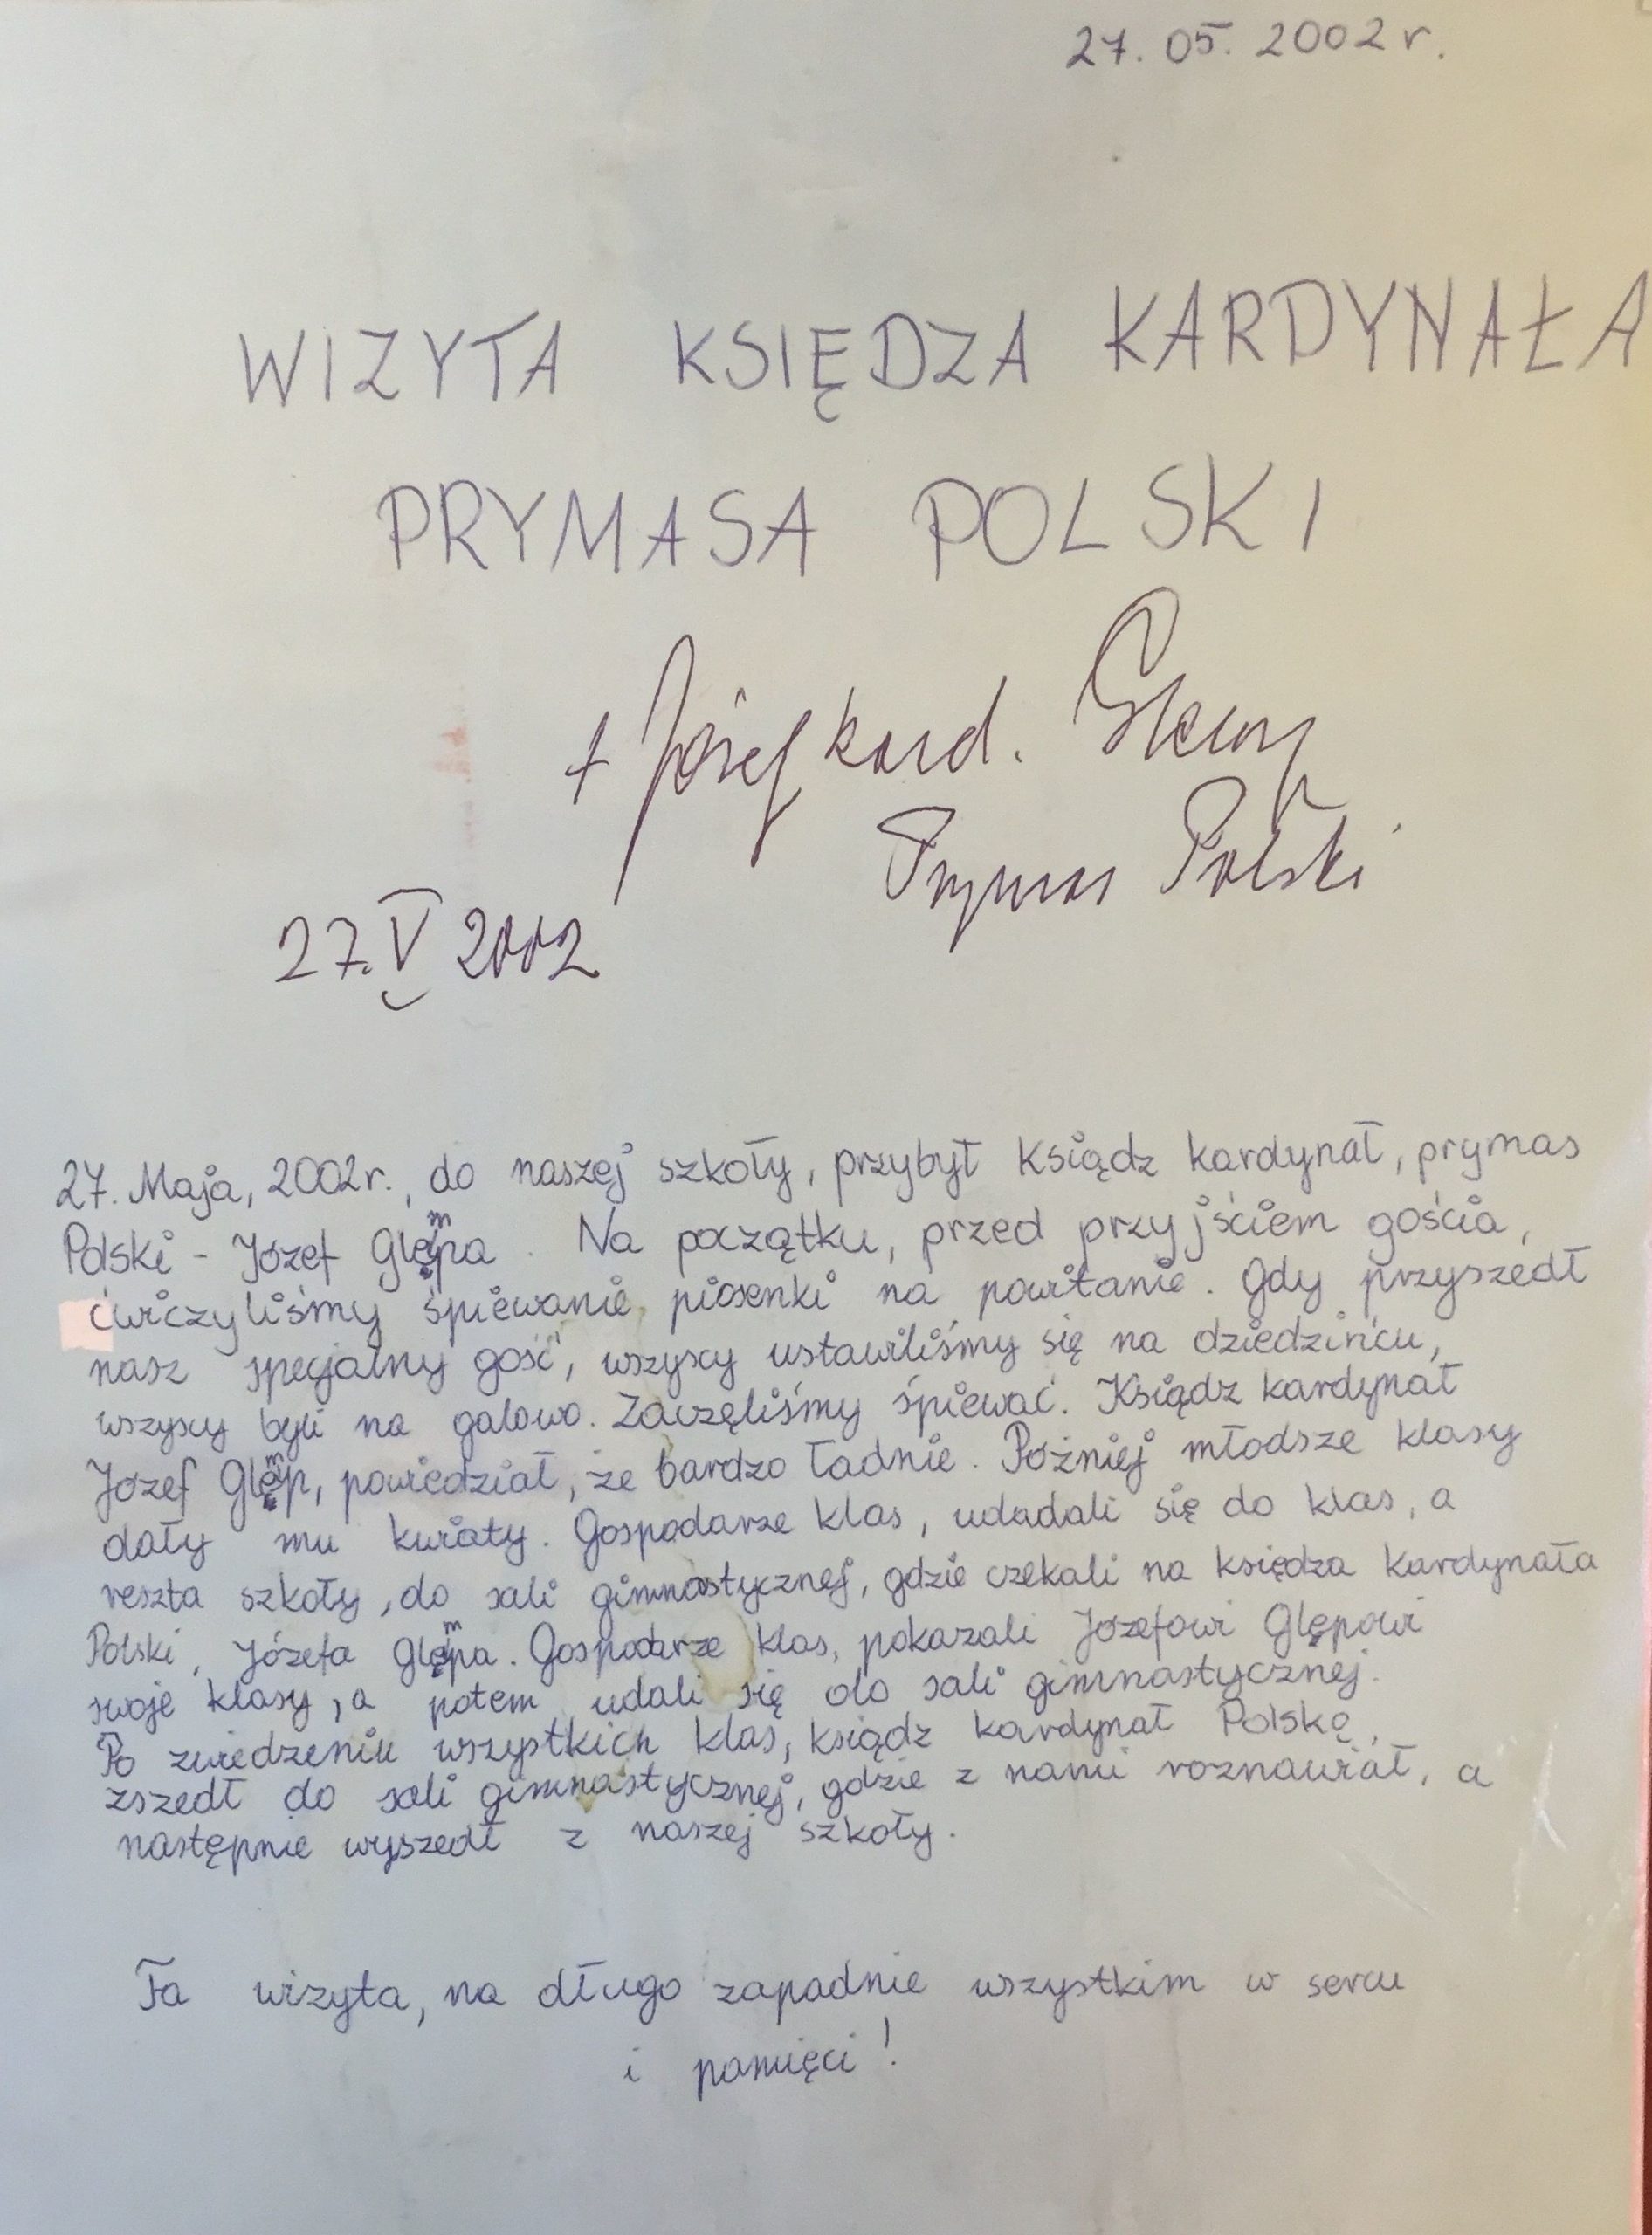 27. 05. 2002 r.
WIZYTA KSIĘDZA KARDYNAŁA
PRYMASA POLSKI
+ Józef kard. Glemp
Prymas Polski
27. V 2002
27. Maja, 2002r., do naszej szkoły, przybył Ksiądz kardynał, prymas
Polski - Józef Glempa. Na początku, przed przyjściem gościa,
ćwiczyliśmy śpiewanie piosenki na powitanie. Gdy przyszedł
nasz specjalny gość, wszyscy ustawiliśmy się na dziedzińcu,
wszyscy byli na galowo. Zaczęliśmy śpiewać. Ksiądz kardynał
Józef Glemp, powiedział, że bardzo ładnie. Później młodsze klasy
dały mu kwiaty. Gospodarze klas, udadali się do klas, a
reszta szkoły, do sali gimnastycznej, gdzie czekali na księdza kardynała
Polski, Józefa Glempa. Gospodarze klas, pokazali Józefowi Glępowi
swoje klasy, a potem udali się do sali gimnastycznej.
Po zwiedzeniu wszystkich klas, ksiądz kardynał Polskę,
zszedł do sali gimnastycznej, gdzie z nami rozmawiał, a
następnie wyszedł z naszej szkoły.
Ta wizyta, na długo zapadnie wszystkim w sercu
i pamięci!